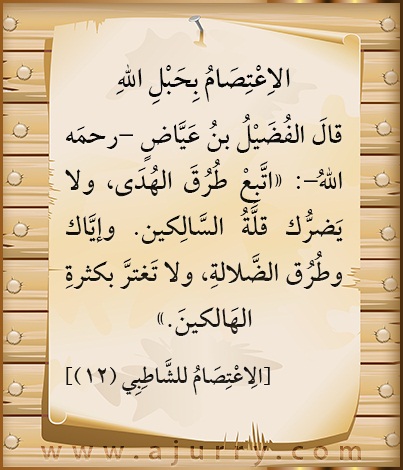 الاِعْتِصَامُ بِحَبْلِ اللهِ
قالَ الفُضَيْلُ بنُ عَيَّاضٍ –رحمَه
اللهُ–: «اتَّبِعْ طُرُقَ الهُدَى، ولا
يَضرُّك قلَّةُ السَّالِكين. وإيَّاك
وطُرُق الضَّلالةِ، ولا تَغترَّ بكثرةِ
الهَالكينَ.»
[الِاعْتِصَامُ للشَّاطِبِي (١٢)]
www.ajurry.com